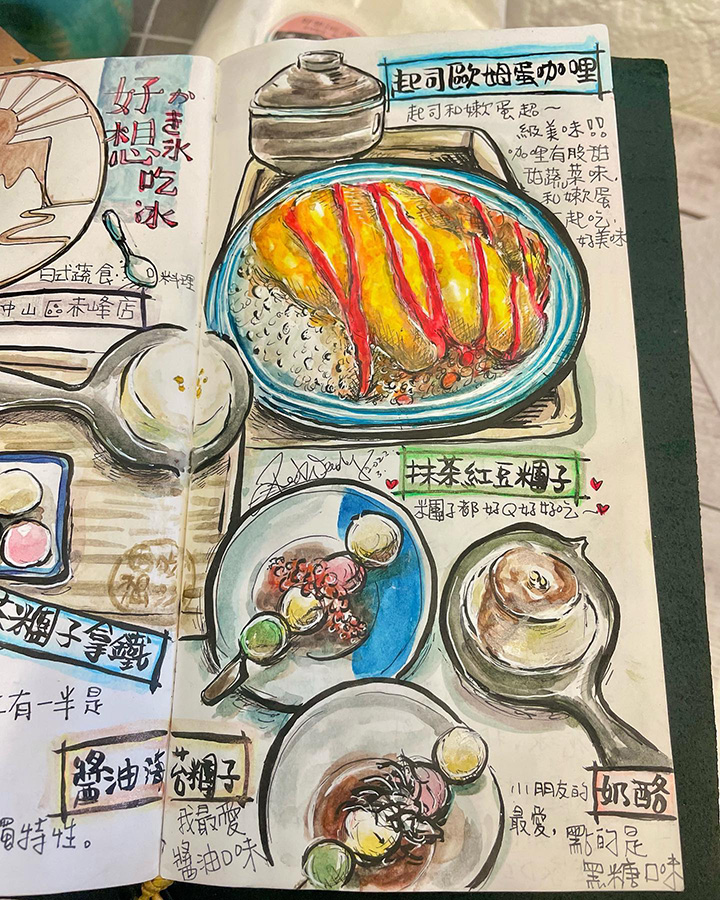 好想吃冰
かき氷
日式蔬食
料理
中山區赤峰店
糰子拿鐵
有一半是
獨特性。
起司歐姆蛋咖哩
起司和嫩蛋超～
級美味!!
咖哩有股甜
甜蔬菜味,
和嫩蛋
一起吃,
好美味
抹茶紅豆糰子
糰子都好Q好好吃～
醬油海苔糰子
我最愛
醬油口味
小朋友的
奶酪
最愛,點的是
黑糖口味